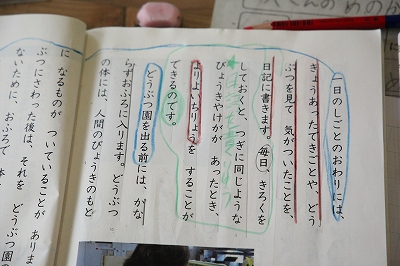 一日のしごとのおわりには、
きょうあったできごとや、どう
ぶつを見て 気がついたことを、
日記に書きます。毎日、きろくを
しておくと、つぎに同じような
びょうきやけがが あったとき、
よりよいちりょうを することが
できるのです。
どうぶつ園を出る前には、かな
らずおふろに入ります。どうぶつ
の体には、人間のびょうきのもと
に なるものが ついていることが ありま
ぶつにさわった後は、それを どうぶつ園
ないために、おふろで 体